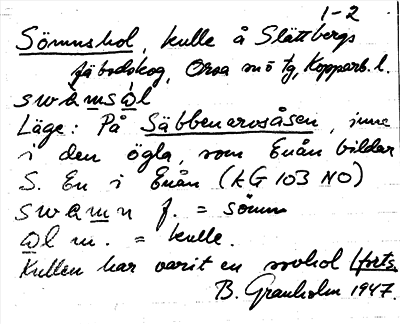 1-2
Sömnshol, kulle å Slättbergs
fäbodskog, Orsa sn ö tg, Kopparb. l.
swæmsǫ̀l
Läge: På Säbbenarvsåsen, inne
i den ögla, som Enån bildar
S. En i Enån (kG 103 NO)
swæmn f. = sömn
ǫ̀l m. = kulle.
Kullen har varit en sovhol |forts.
B. Granholm 1947.